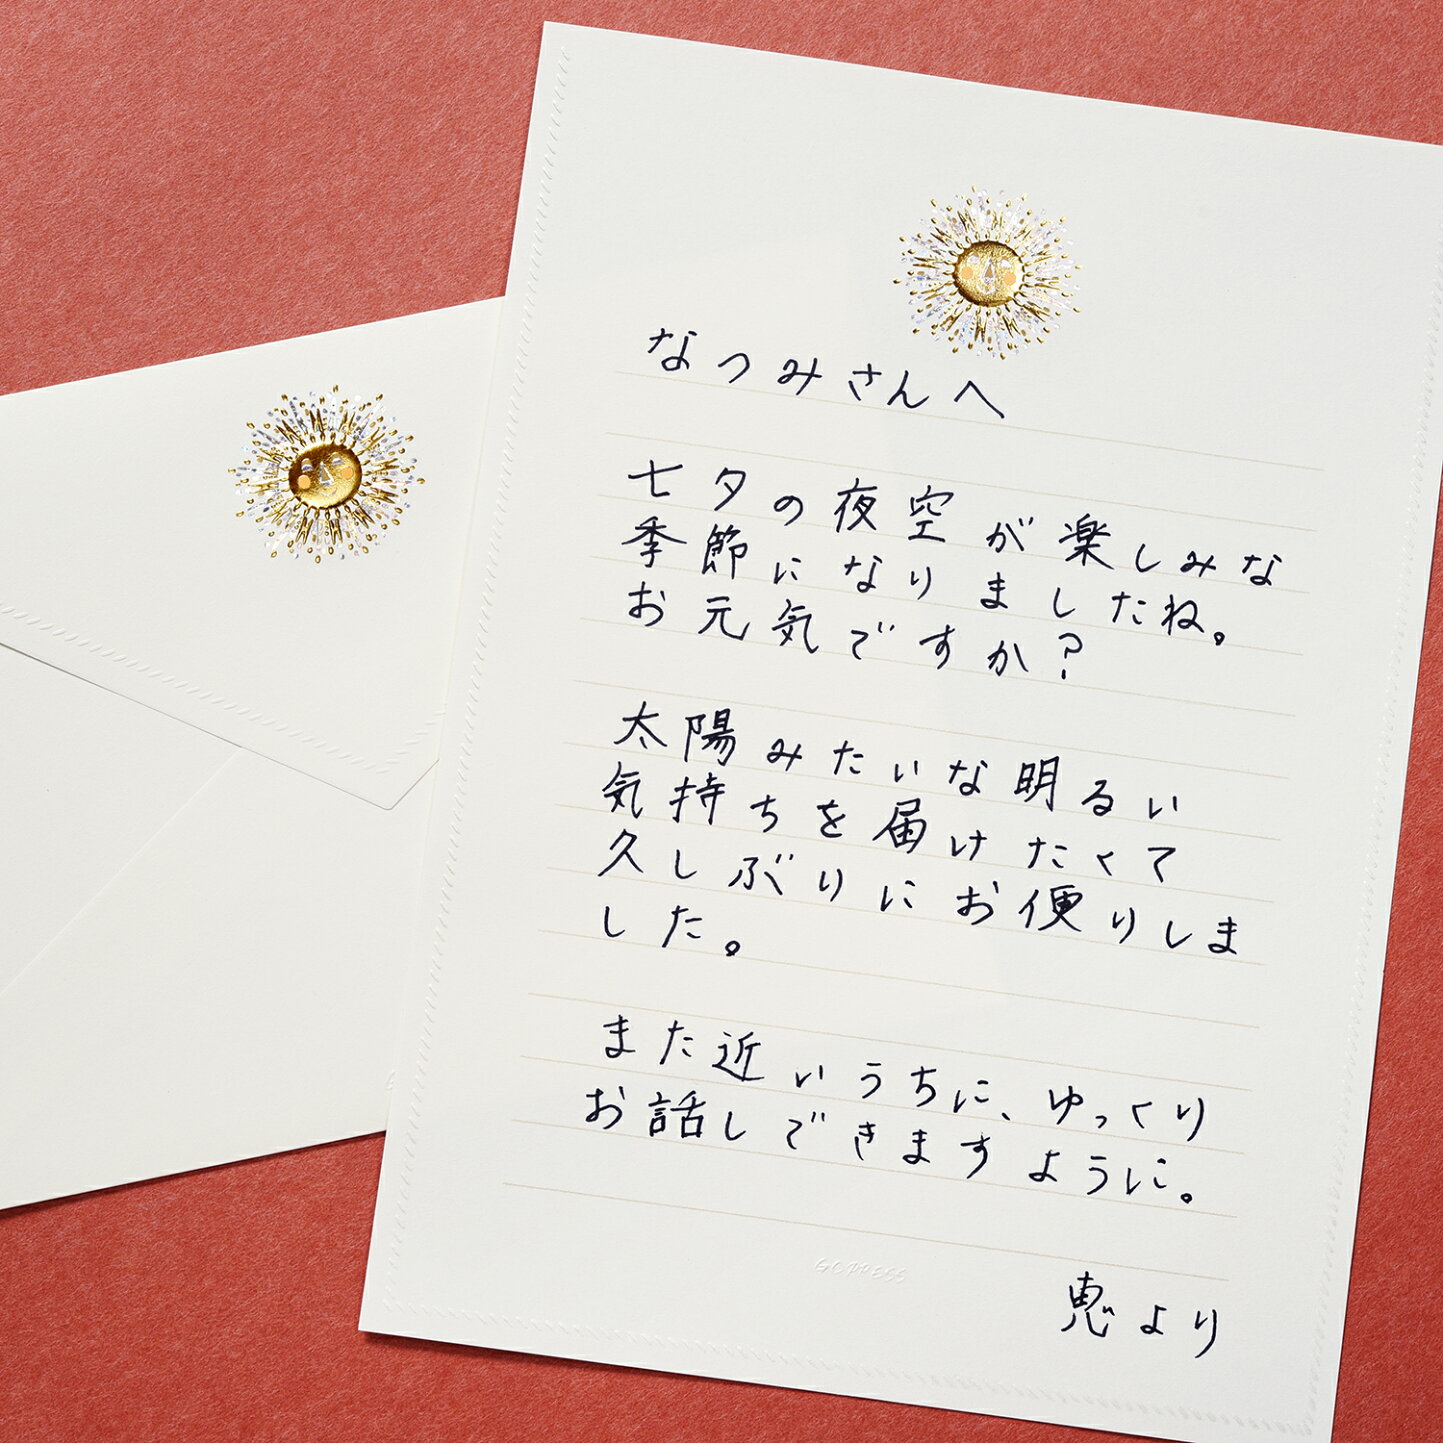 なつみさんへ
七夕の夜空が楽しみな
季節になりましたね。
お元気ですか？
太陽みたいな明るい
気持ちを届けたくて
久しぶりにお便りしま
した。
また近いうちに、ゆっくり
お話しできますように。
G.C.PRESS
恵より